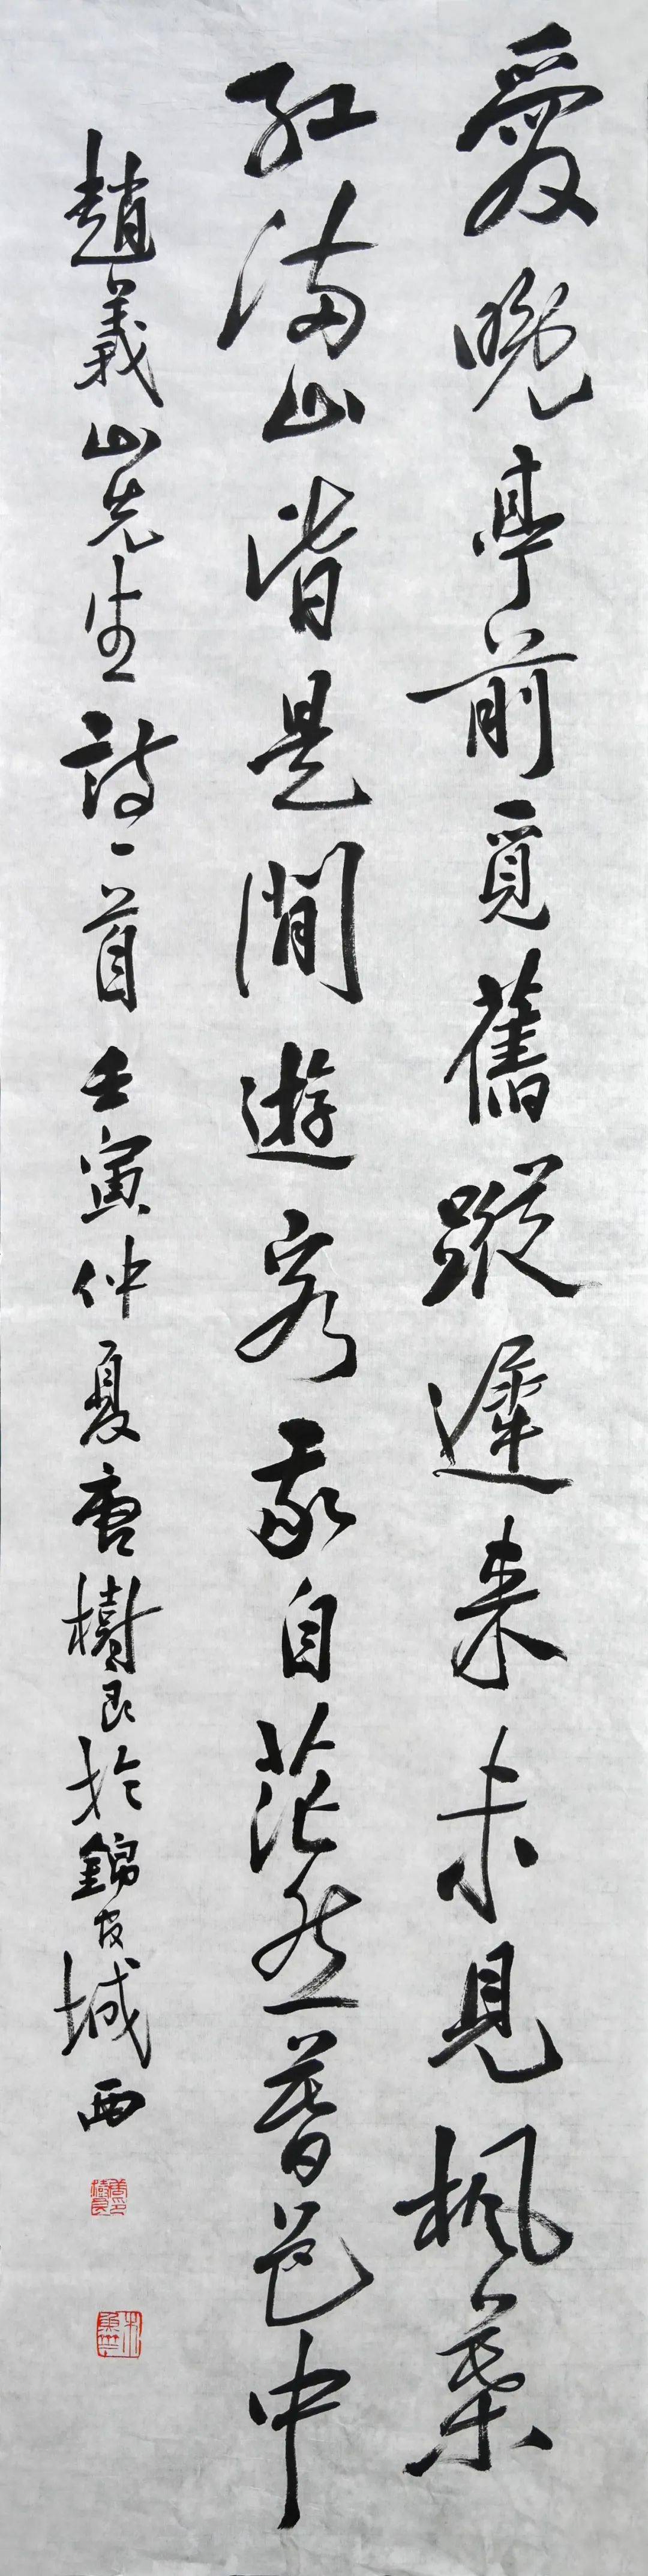 愛晚亭前覓舊蹤遲来未見楓葉
紅滿山皆是閒遊客我自茫然暮色中
趙義山先生詩一首壬寅仲夏唐樹良於錦官城西